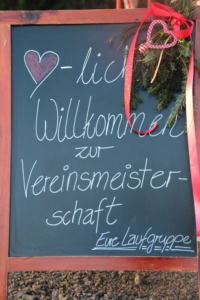 -lich
Willkommen
zur
Vereinsmeister-
schaft
Eure Laufgruppe